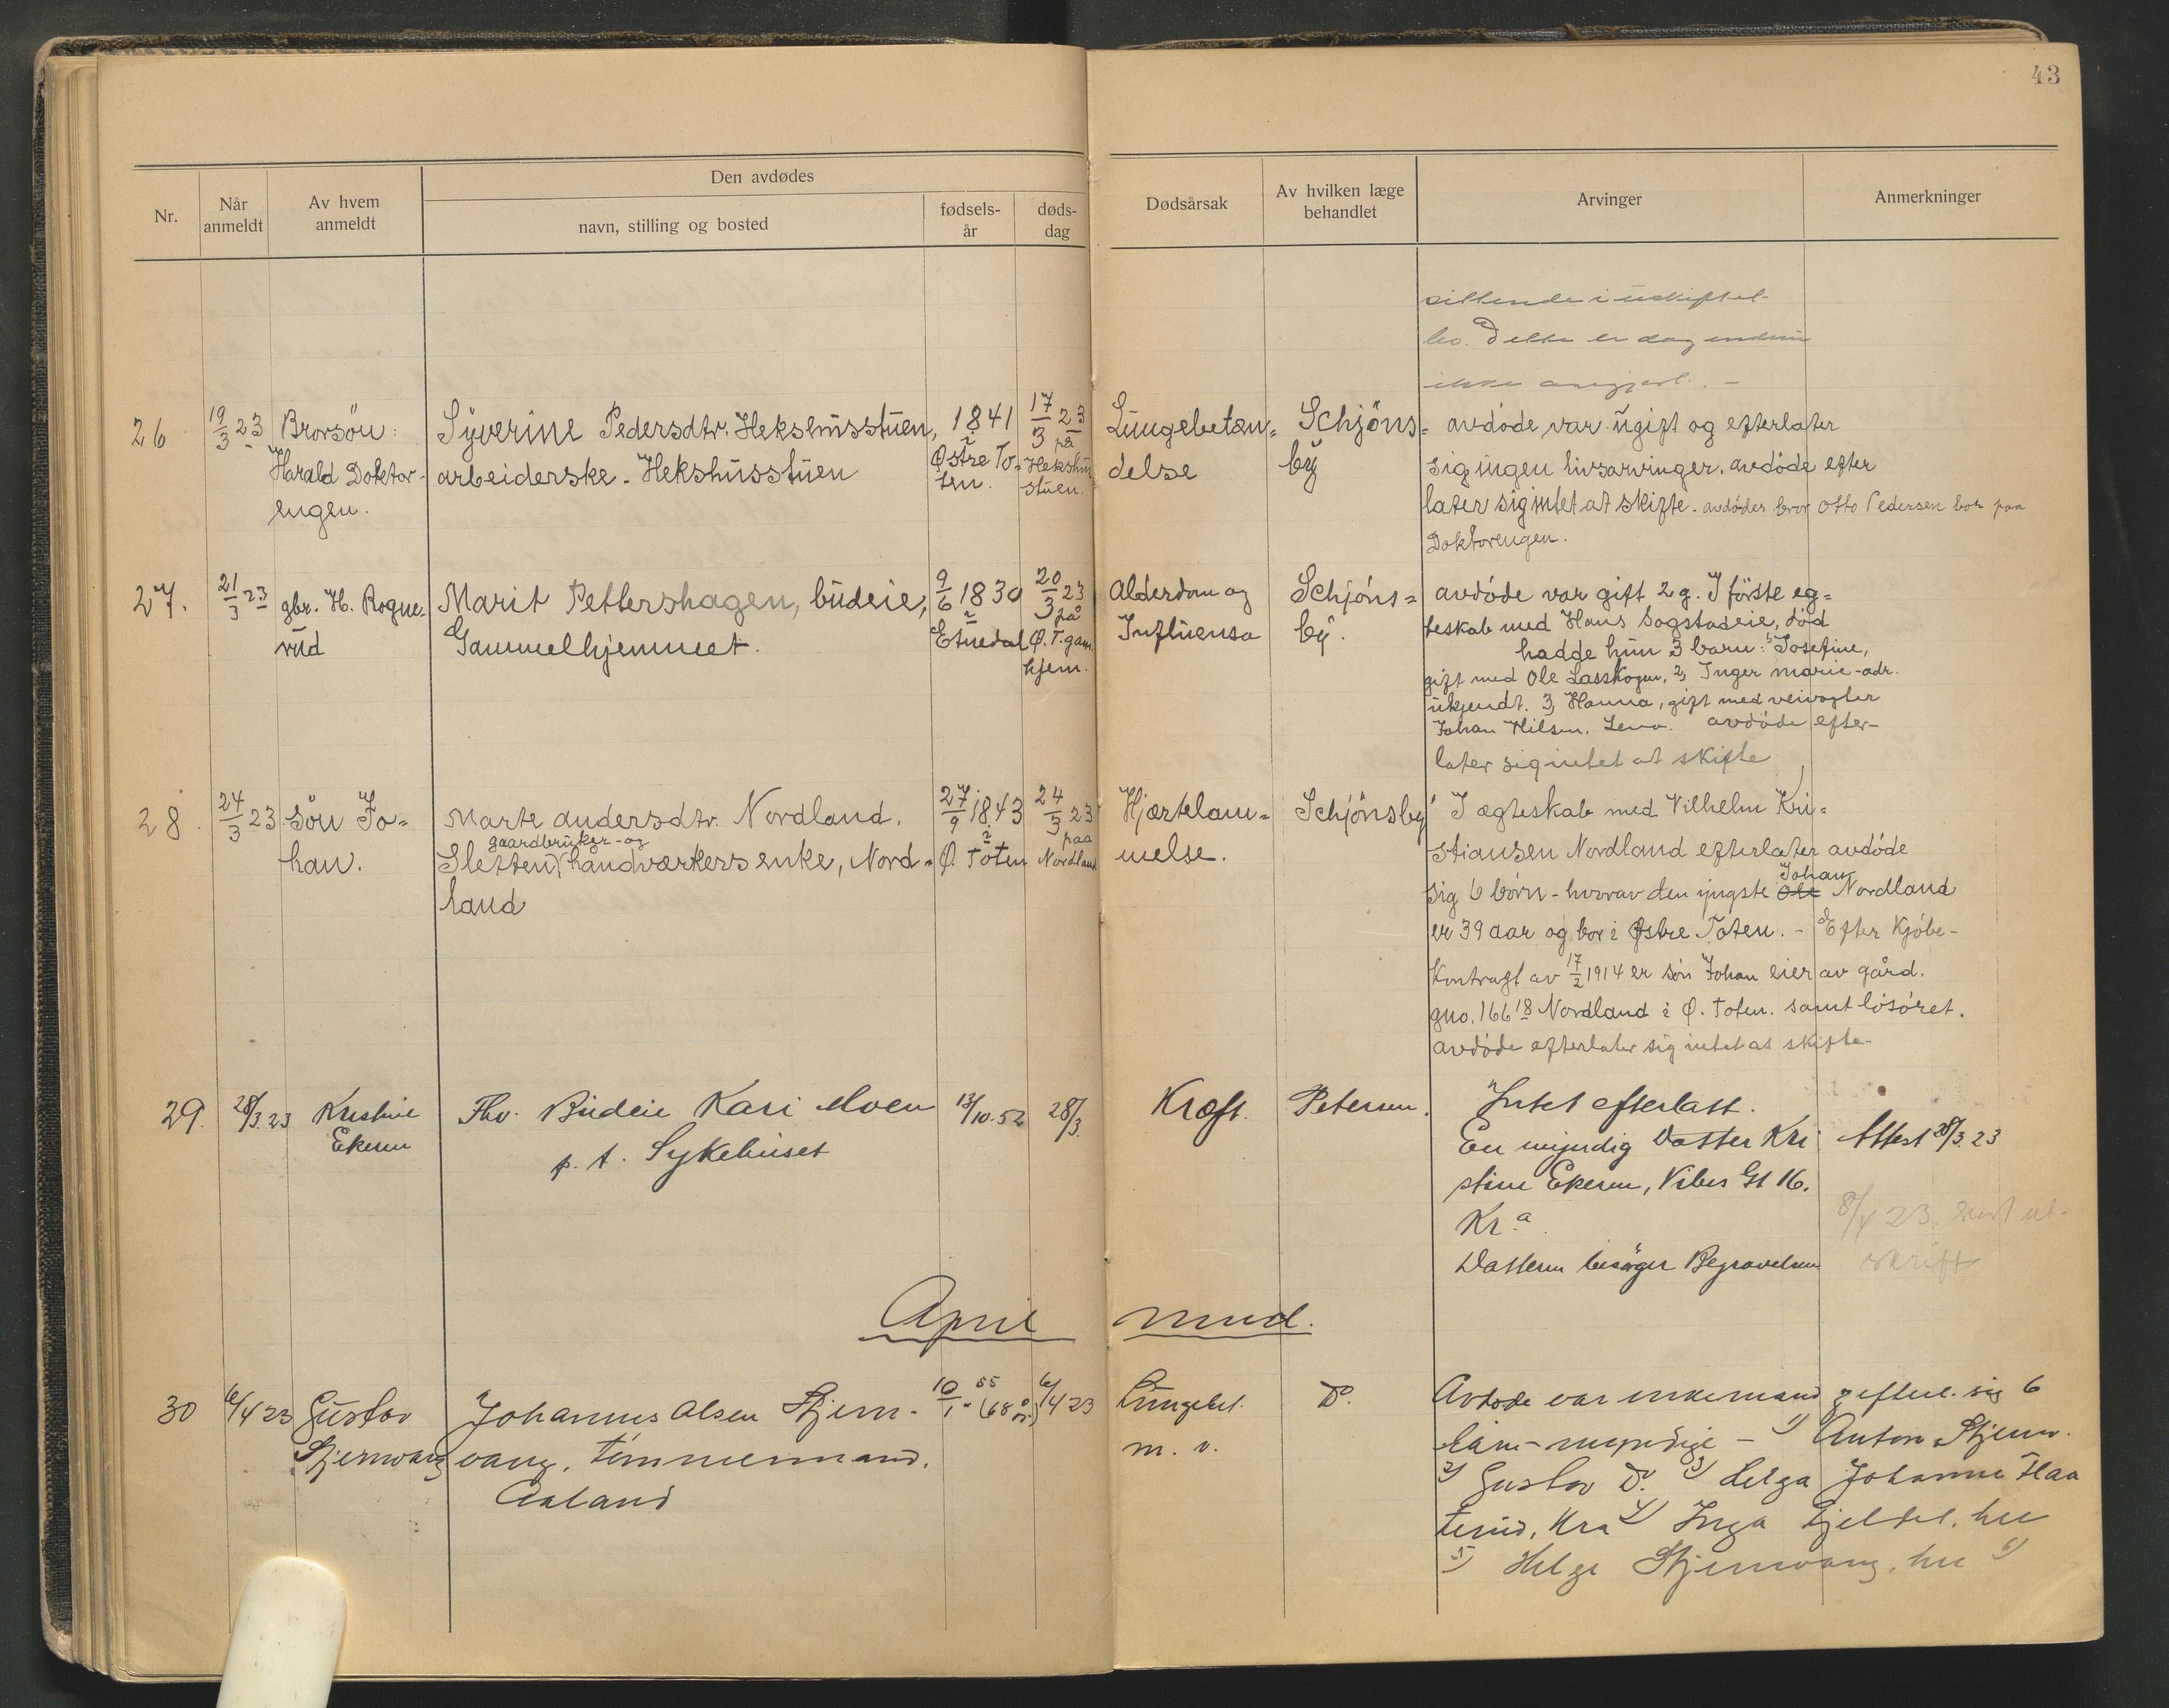 43
Nr.
Når anmeldt
Av hvem anmeldt
Den avdødes
navn, stilling og bosted
fødsels-år
døds-dag
Dødsårsak
Av hvilken læge behandlet
Arvinger
Anmerkninger
sittende i uskiftet
bo. Dette er dog endnu
ikke
26
19/3 23
Brorsøn:
Harald Doktor-
engen.
Syverine Pedersdtr. Hekshusstuen,
arbeiderske. Hekshusstuen
1841
i
Østre To-
ten.
17/3 23
på
Hekshus
stuen.
Lungebetæn=
delse
Schjöns=
by
avdöde var ugift og efterlater
sig ingen livsarvinger. avdöde efter
later sig intet at skifte. avdödes bror Otto Pedersen bor paa
Doktorengen.
27.
21/3 23
gbr. H. Rogne-
rud
Marit Pettershagen, budeie,
Gammelhjemmet.
9/6 1830
i
Etnedal
20/3 23
på
Ø. T. gam.
hjem.
Alderdom og
Influensa
Schjöns=
by.
avdöde var gift 2 g. I förste eg=
teskab med Hans Sogstadeie, död
hadde hun 3 barn: 1, Josefine,
gift med Ole Lasskogen, 2, Inger Marie - adr.
ukjendt. 3, Hanna, gift med veivogter
Johan Nilsen. Lena. avdöde efter-
later sig intet at skifte
28.
24/3 23
sön Jo=
han.
Marte Andersdtr. Nordland.
gaardbruker- og
Sletten, handværkers enke, Nord=
land
27/9 1843
i
Ø. Toten
24/3 23
paa
Nordland
Hjertelam=
melse.
Schjönsby
I ægteskab med Vilhelm Kri=
stiansen Nordland efterlater avdöde
Johan
sig 6 börn - hvorav den yngste Ole Nordland
er 39 aar og bor i Østre Toten. - Efter Kjöbe-
kontragt av 17/2 1914 er sön Johan eier av gård.
gno. 166 18 Nordland i Ø. Toten. samt lösöret.
avdöde efterlater sig intet at skifte.
29.
28/3 23
Kristine
Ekeren
Fhv. Budeie Kari Moen
p. t. Sykehuset
13/10. 52
28/3.
Kræft.
Petersen.
Intet efterlatt.
En myndig Datter Kri
stine Ekeren, Vibes Gt 16.
Kr.a
Datteren besörger Begravelsen
Attest 28/3. 23
8/4 23. ut-
skrift
April mnd.
30
6/4 23
Gustav
Stjernvang
Johannes Olsen Stjern-
vang, tömmermand.
Aaland
10/1 - 55 (68 år)
6/4 23
Lungebet.
m. v.
Do.
Avdöde var enkemand & efterl. sig 6
barn - myndige - 1) Anton Stjernv.
2) Gustav Do. 3) Helga Johanne Haa
terud, Kra 4) Inga Gjeldal, her
5) Helge Stjernvang, her 6)